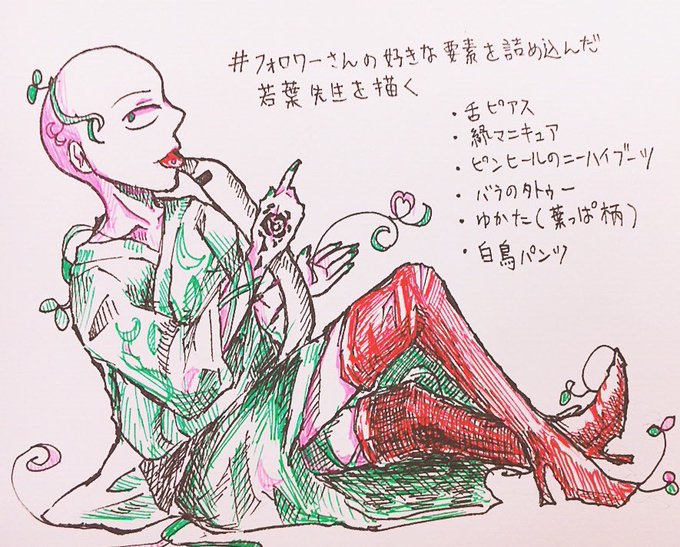 #フォロワーさんの好きな要素を詰め込んだ
若葉先生を描く
・舌ピアス
・緑マニキュア
・ピンヒールのニーハイブーツ
・バラのタトゥー
・ゆかた(葉っぱ柄)
・白鳥パンツ